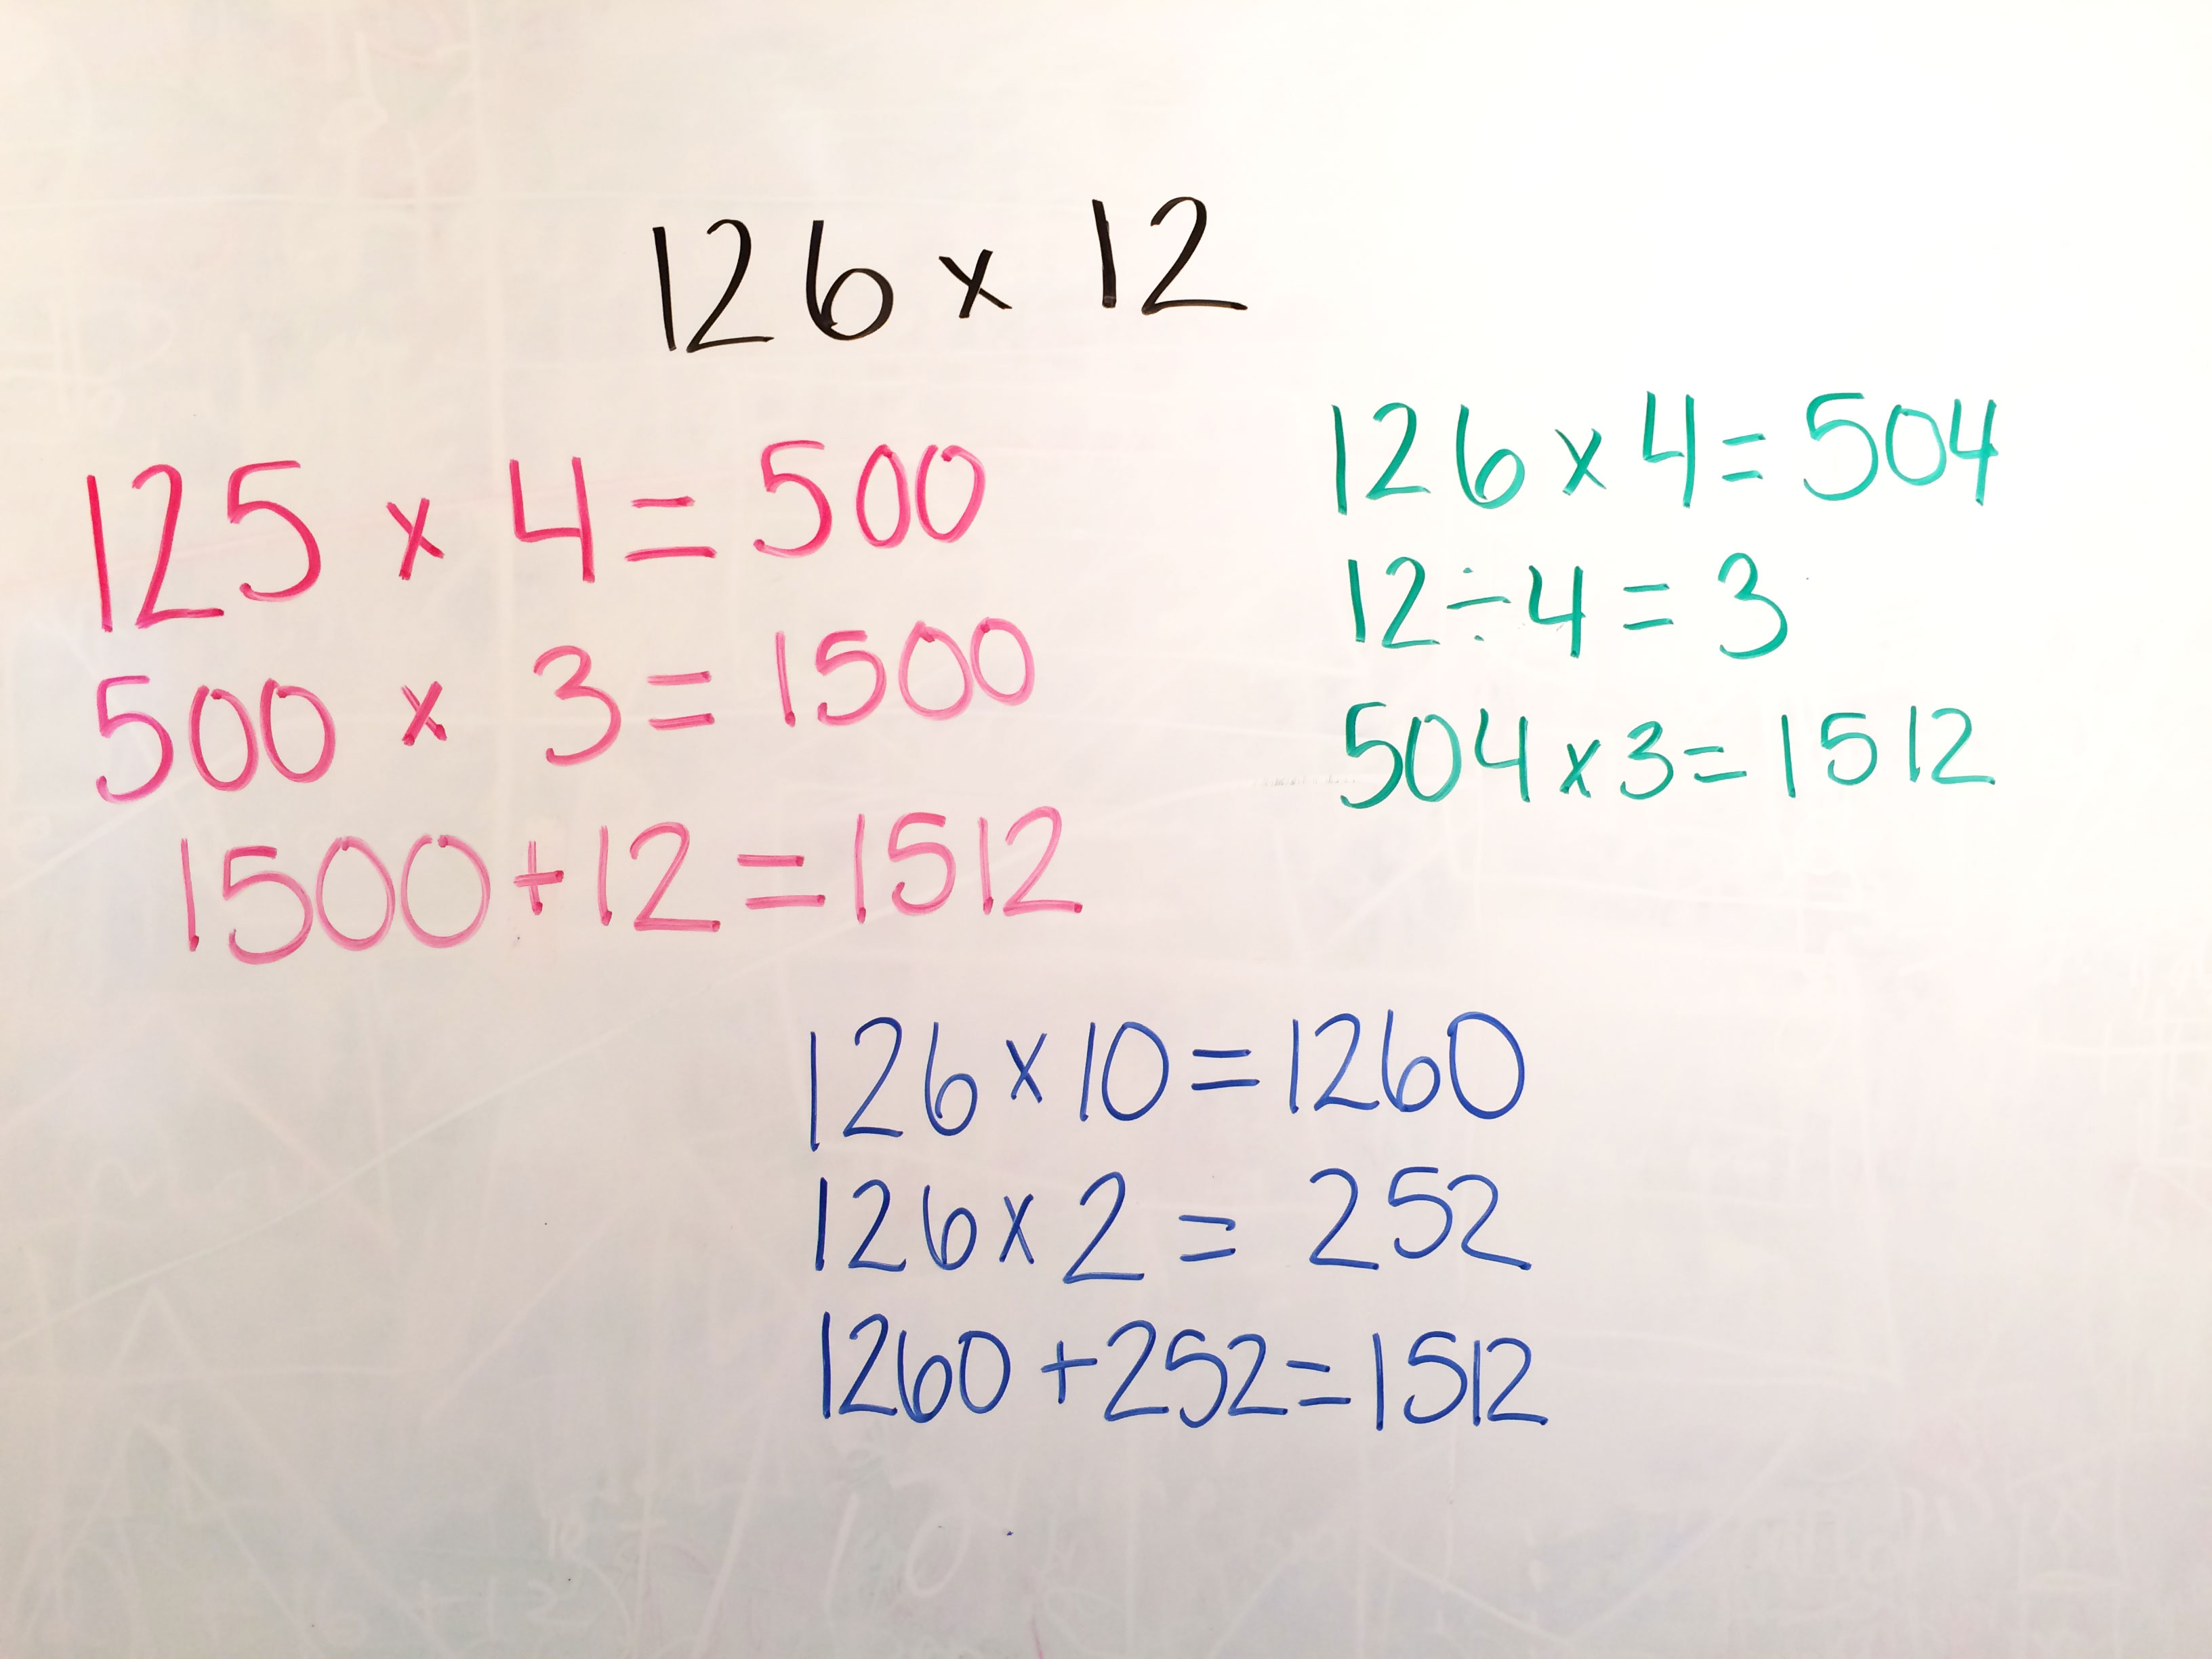 126 x 12
125 x 4 = 500
500 x 3 = 1500
1500 + 12 = 1512
126 x 4 = 504
12 ÷ 4 = 3
504 x 3 = 1512
126 x 10 = 1260
126 x 2 = 252
1260 + 252 = 1512